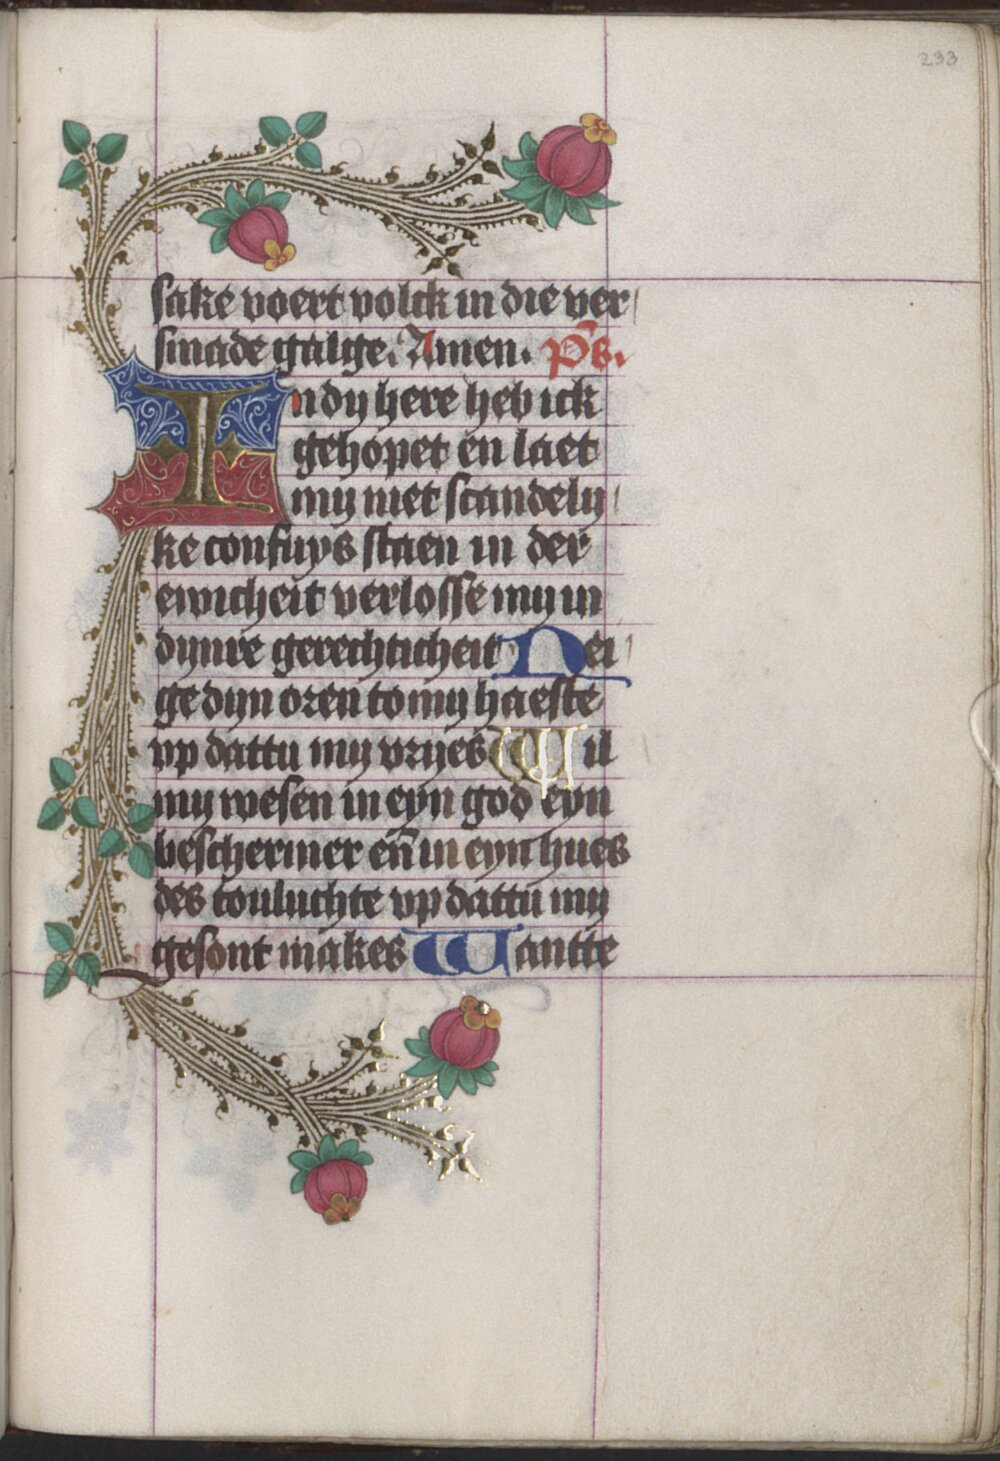 233
sake voert volck in die ver
smade galge. Amen. Ps.
In dy here heb ick
gehopet en laet
my niet scandely
ke confuys staen in der
ewicheit verlosse my in
dynre gerechticheit Nei
ge dyn oren to my haeste
vp dattu my vryes Wil
my wesen in eyn god eyn
beschermer en̄ in eyn hues
des touluchte vp dattu my
gesont makes Wantte